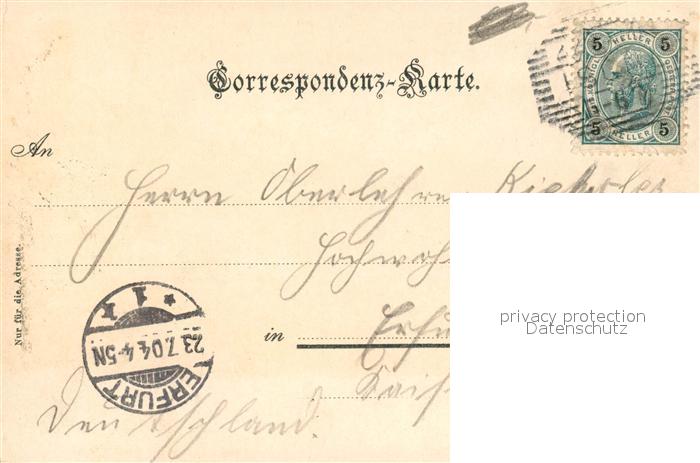 5 HELLER 5
5 HELLER 5
Correspondenz-Karte.
An
Herrn Oberlehrer
Hochwoh
Nur für die Adresse.
privacy protection
Datenschutz
in Erfu
Kais
* 1 k *
23.7.04.4-5N
ERFURT
Deutschland.